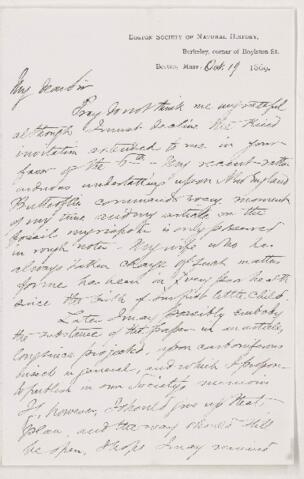 BOSTON SOCIETY OF NATURAL HISTORY,
Berkeley, corner of Boylston St.
BOSTON, MASS. Oct. 19 1869.
My dear Sir
Pray do not think me ungrateful
although I must decline the kind
invitation extended to me in your
favor of the 6th. My recent rather
arduous undertaking upon New England
Butterflies commands every moment
of my time and my article on the
fossil myriapods is only preserved
in rough notes. My wife who has
always taken charge of such matters
for me has been in very poor health
since the birth of our first little child.
Later I may possibly embody
the substance of that paper in an article,
long since projected, upon carboniferous
insects in general, and which I propose
to publish in our Society's memoirs
If, however, I should give up that
plan, and the way should still
be open, I hope I may